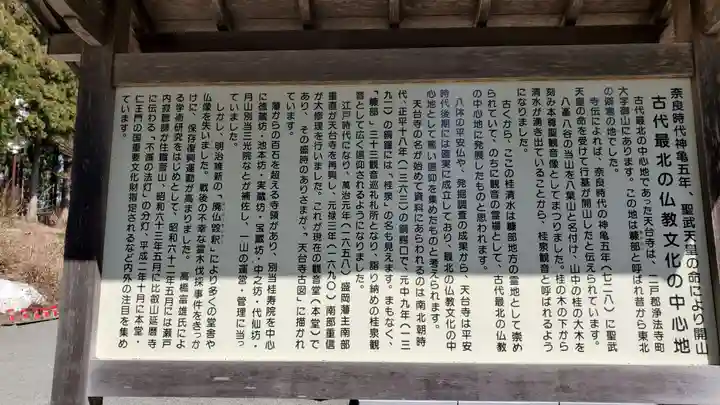 奈良時代神亀五年、聖武天皇の命により開山
古代最北の仏教文化の中心地
古代最北の中心地であった天台寺は、二戸郡浄法寺町
大字御山にあります。この地は糠部と呼ばれ昔から東北
の霊地の地でした。
寺伝によれば、奈良時代の神亀五年(七二八)に聖武
天皇の命を受けて行基が開山したと伝えられています。
八峯八谷の当山を八葉山と名付け、山中の桂の大木を
刻み本尊聖観音像としてまつりました。桂の木の下から
清水が湧き出ていることから、桂泉観音と呼ばれるよう
になりました。
古くから、ここの桂清水は糠部地方の霊地として崇め
られていて、のちに観音の霊場として、古代最北の仏教
の中心地に発展したものと思われます。
八体の平安仏や、発掘調査の成果から、天台寺は平安
時代後期には確実に成立しており、最北の仏教文化の中
心地として篤い信仰を集めたものと考えられます。
天台寺の名が始めて資料にあらわれるのは南北朝時
代、正平十八年(一三六三)の銅鰐口で、元中九年(一三
九二)の銅鐘には、桂泉、の名も見えます。まもなく、
「糠部・三十三観音巡礼札所となり、語り納めの桂泉観
音として広く信仰されるようになりました。
江戸時代になり、萬治元年(一六五八)盛岡藩主南部
重直が天台寺を再興し、元禄三年(一六九〇)南部重信
が大修理を行いました。これが現在の観音堂(本堂)で
あり、その盛時のありさまが、「天台寺古図」に描かれ
ています。
藩からの百石を超える寺領があり、別当桂寿院を中心
に徳蔵坊・池本坊・実蔵坊・宝蔵坊・中之坊・代仙坊・
月山別当三光院などが補佐し、一山の運営・管理に当っ
ていました。
しかし、明治維新の、廃仏毀釈、により多くの堂舎や
仏像を失いました。戦後の不幸な霊木伐採事件をきっか
けに、保存復興運動が高まりました。高橋富雄氏によ
る学術研究をはじめとして、昭和六十二年五月には瀬戸
内寂聴師が住職晋山、昭和六十三年五月に比叡山延暦寺
に伝わる、不滅の法灯、の分灯、平成二年十月に本堂・
仁王門の国重要文化財指定されるなど内外の注目を集め
ています。